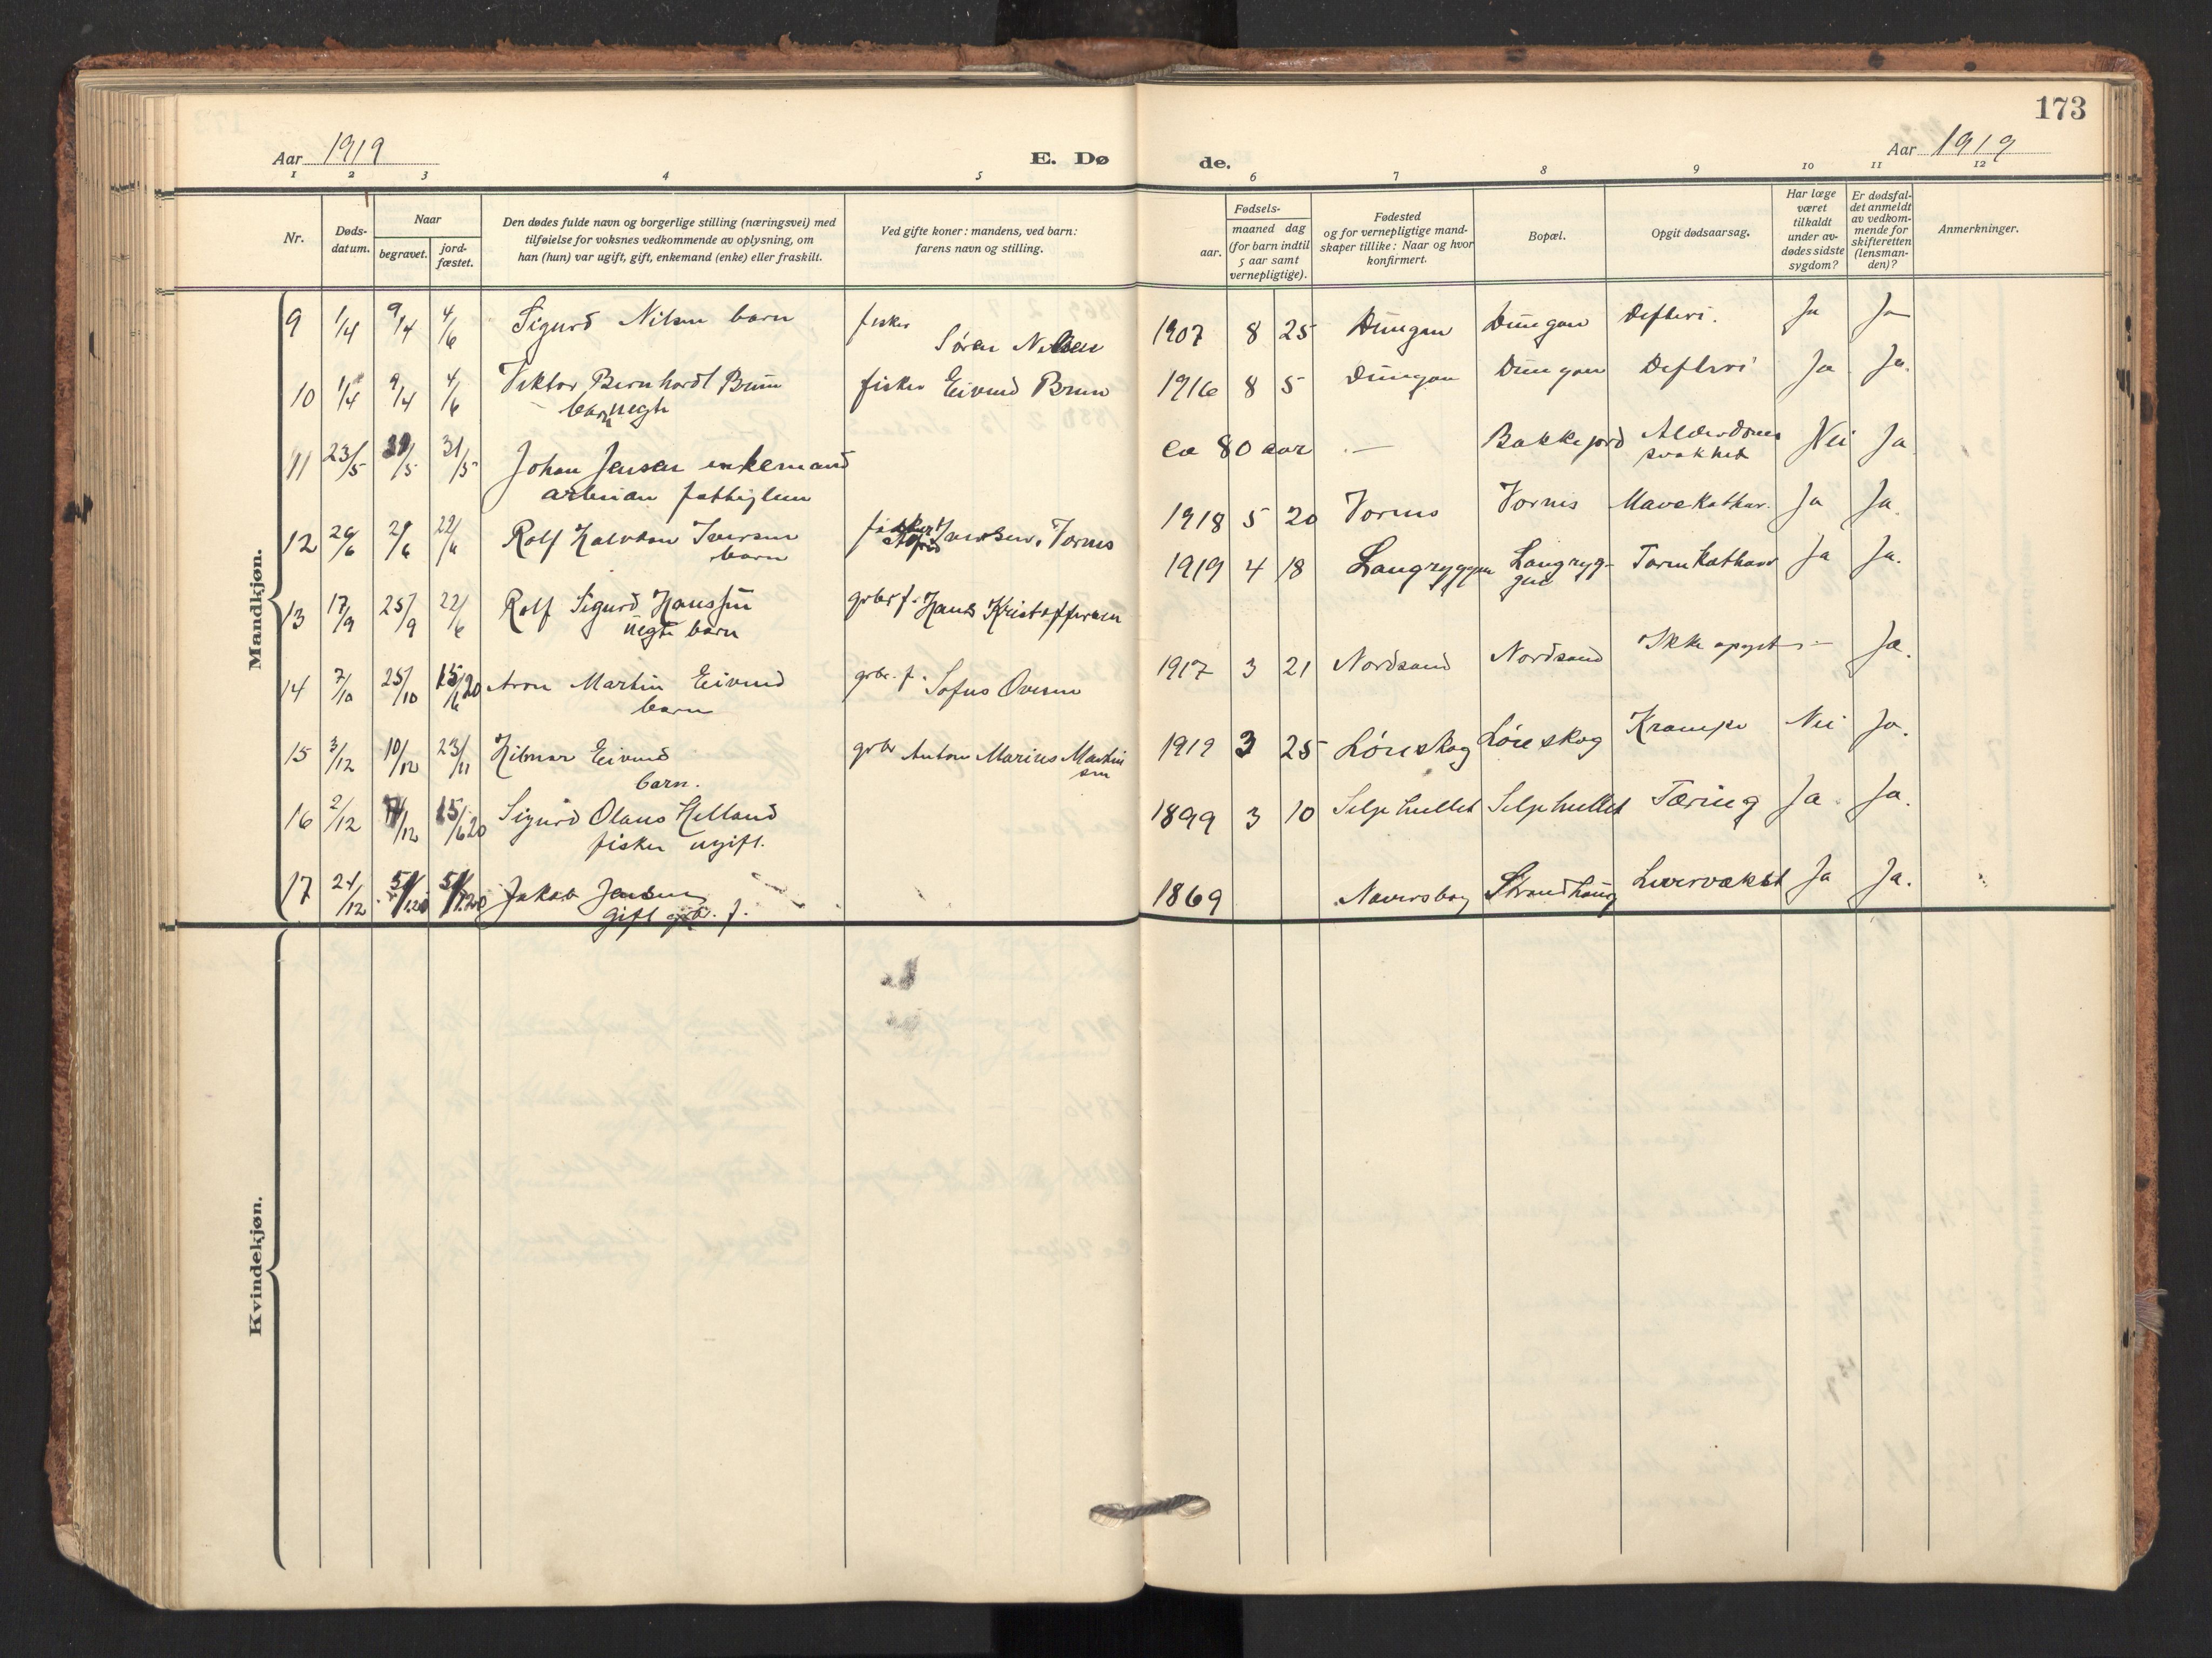 173
Aar 1919
E. Dø
de.
Aar 1919
1 2 3 4 5 6 7 8 9 10 11 12
Nr.
Døds-
datum.
Naar
begravet.
jord-
fæstet.
Den dødes fulde navn og borgerlige stilling (næringsvei) med
tilføielse for voksnes vedkommende av oplysning, om
han (hun) var ugift, gift, enkemand (enke) eller fraskilt.
Ved gifte koner: mandens, ved barn:
farens navn og stilling.
Fødsels-
aar.
maaned dag
(for barn indtil
5 aar samt
vernepligtige).
Fødested
og for vernepligtige mand-
skaper tillike: Naar og hvor
konfirmert.
Bopæl.
Opgit dødsaarsag.
Har læge
været
tilkaldt
under av-
dødes sidste
sygdom?
Er dødsfal-
det anmeldt
av vedkom-
mende for
skifteretten
(lensman-
den)?
Anmerkninger.
Mandkjøn.
9 1/4 9/4 4/6 Sigurd Nilsen barn fisker
Søren Nilsen
1907 8 25 Dungan Dungan Defteri. Ja Ja
10 1/4 9/4 4/6 Viktor Bernhardt Brun fisker Eivind Brun 1916 8 5 Dungan Dungan Defteri Ja Ja.
barn uegte
11 23/5 31/5 31/5 Johan Jensen enkemand ca 80 aar — Bakkejord Alderdoms Nei Ja
svakhet
fattiglem
12 26/6 2/6 22/6 Rolf Halvdan Iversen fisker Iversen. Tornes 1918 5 20 Tornes Tornes Mavekathar. Ja Ja.
barn
13 17/9 25/9 22/6 Rolf Sigurd Hanssen grbr f. Hans Kristoffersen 1919 4 18 Langryggen Langryg- Tarmkathar Ja Ja.
gen
uegte barn
14 7/10 25/10 15/6 20 Aron Martin Eivind grbr. f. Sofus Ovesen 1917 3 21 Nordsand Nordsand Ikke opgit — Ja.
barn
15 3/12 10/12 23/11 Hilmar Eivind grbr Anton Marius Martin
sen
1919 3 25 Løneskog Løneskog Krampe Nei Ja.
barn.
16 2/12 /12 15/6 20 Sigurd Olaus Helland 1899 3 10 Selje hullet Selje hullet Tæring Ja Ja.
fisker ugift.
17 21/12 5/1 20 5/1 20 Jakob Jensen 1869 Naversbog Strandhaug Levervækst Ja Ja.
gift grbr. f.
Kvindekjøn.